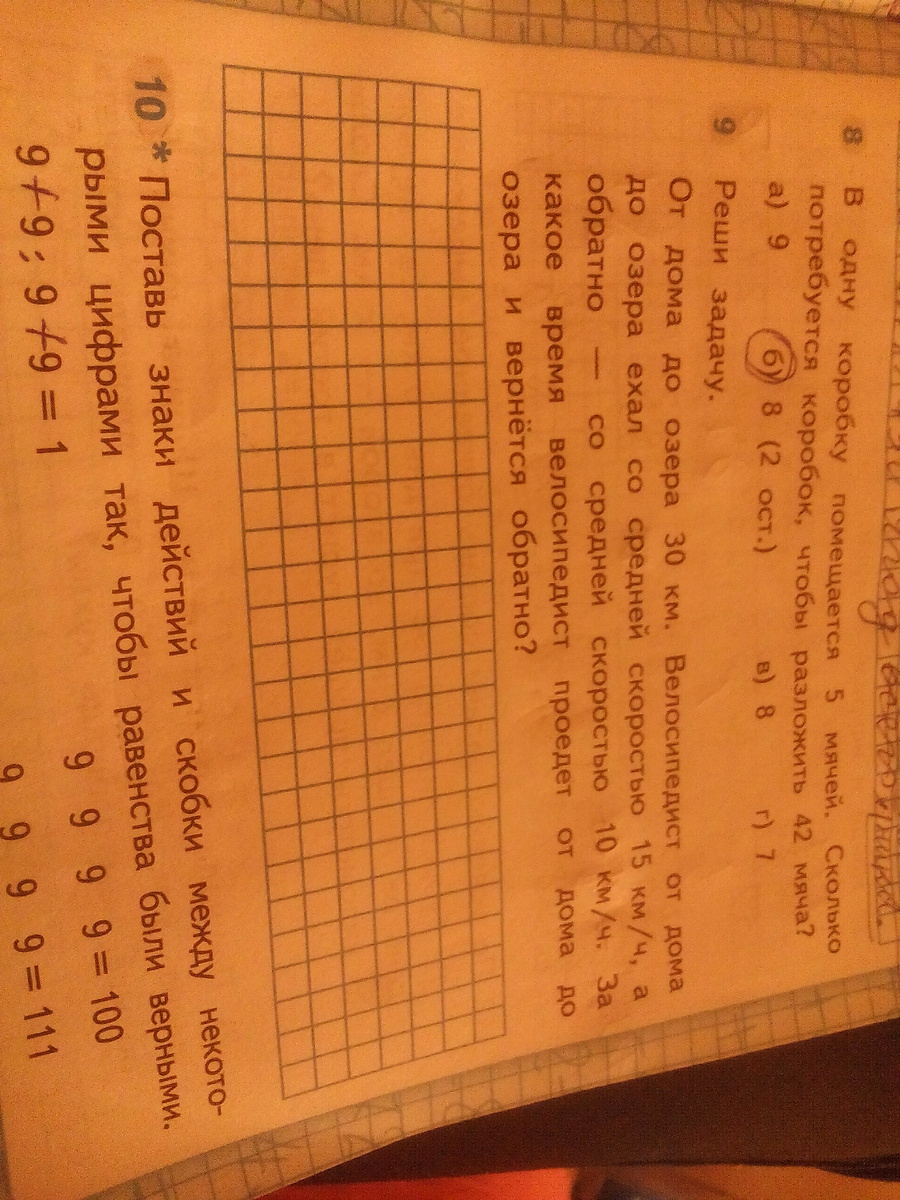 8 В одну коробку помещается 5 мячей. Сколько
потребуется коробок, чтобы разложить 42 мяча?
а) 9 б) 8 (2 ост.) в) 8 г) 7
9 Реши задачу.
От дома до озера 30 км. Велосипедист от дома
до озера ехал со средней скоростью 15 км/ч, а
обратно — со средней скоростью 10 км/ч. За
какое время велосипедист проедет от дома до
озера и вернётся обратно?
10 * Поставь знаки действий и скобки между некото-
рыми цифрами так, чтобы равенства были верными.
9 + 9 : 9 + 9 = 1
9 9 9 9 = 100
9 9 9 9 = 111